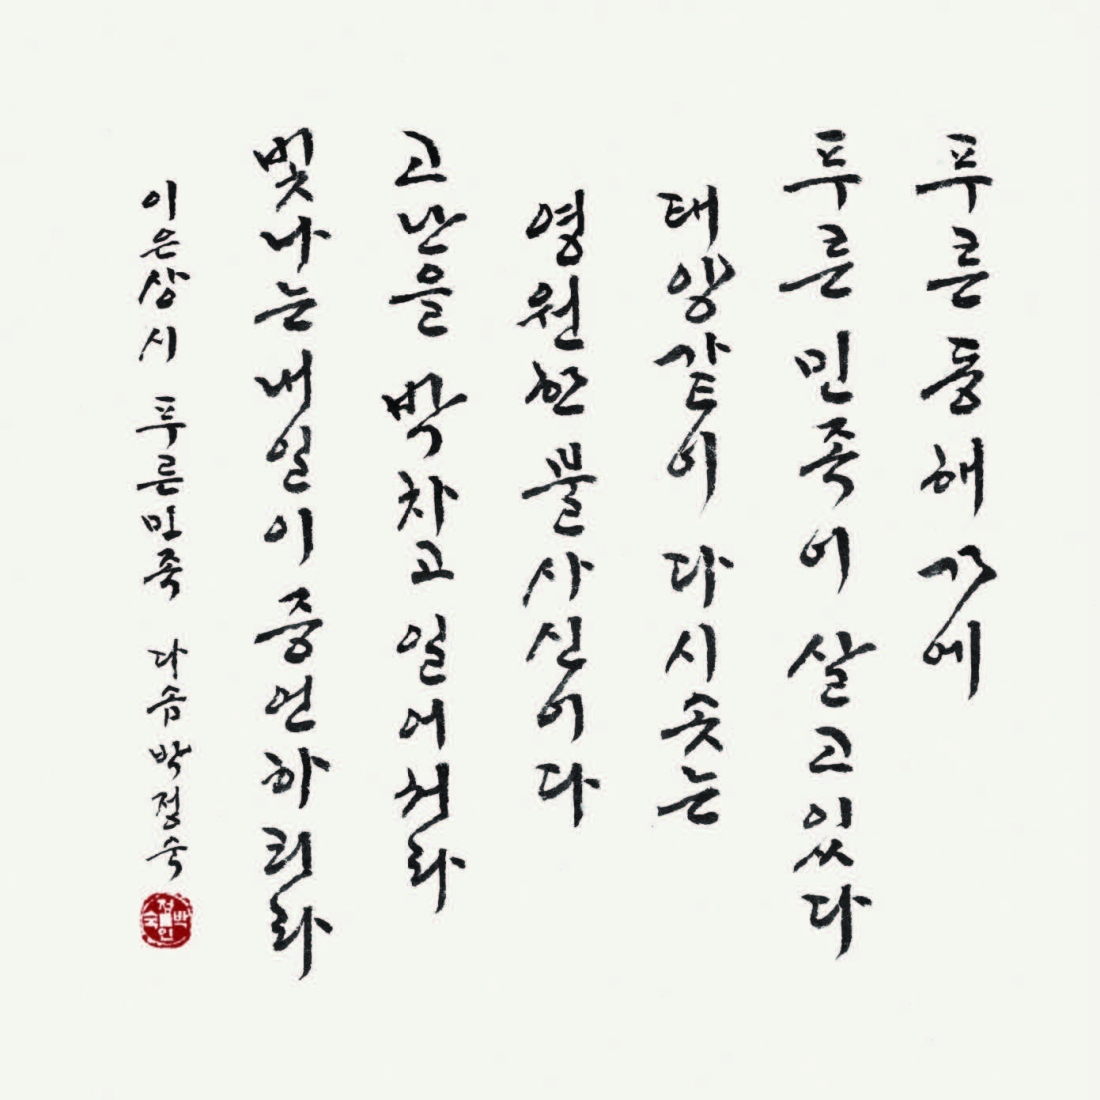 푸른 동해 가에
푸른 민족이 살고 있다
태양같이 다시 솟는
영원한 불사신이다
고난을 박차고 일어서라
빛나는 내일이 증언하리라
이은상 시 푸른 민족 다솜 박정숙
박정숙인